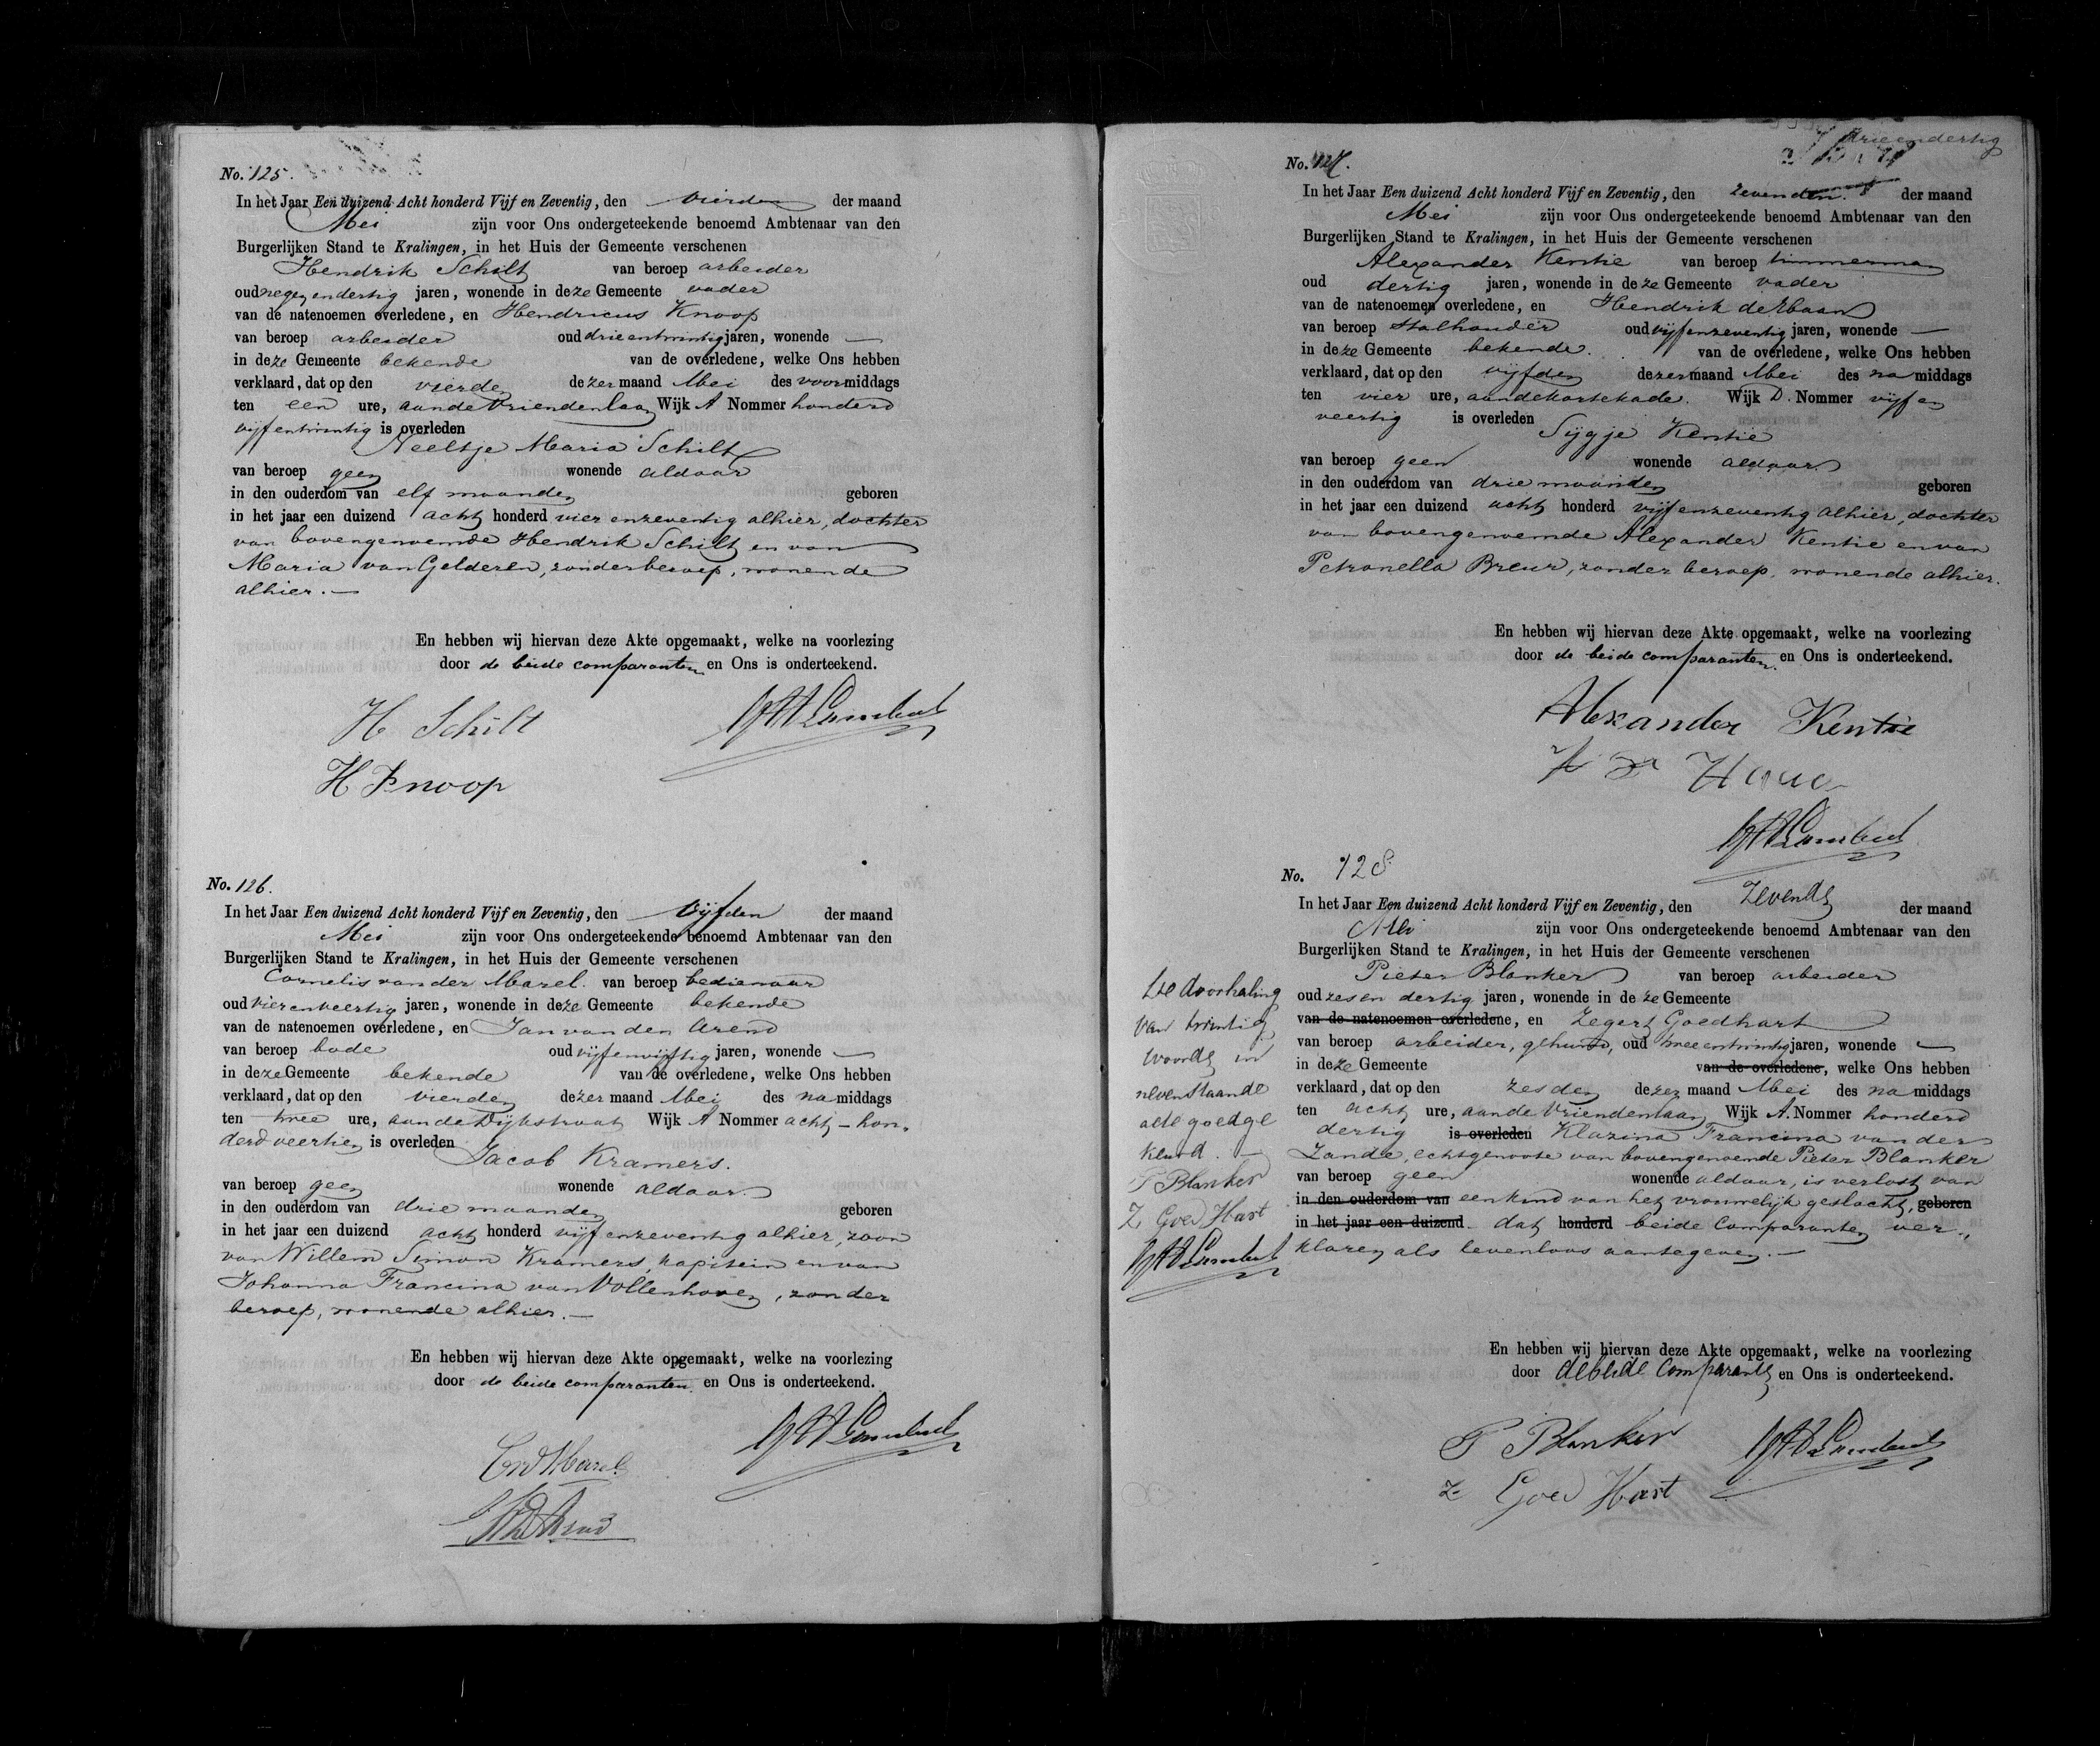 No. 125.
In het Jaar Een duizend Acht honderd Vijf en Zeventig, den vierden der maand
Mei zijn voor Ons ondergeteekende benoemd Ambtenaar van den
Burgerlijken Stand te Kralingen, in het Huis der Gemeente verschenen
Hendrik Schilt van beroep arbeider
oud negenendertig jaren, wonende in deze Gemeente vader
van de natenoemen overledene, en Hendricus Knoop
van beroep arbeider oud drieentwintig jaren, wonende —
in deze Gemeente bekende van de overledene, welke Ons hebben
verklaard, dat op den vierden dezer maand Mei des voormiddags
ten een ure, aan de Vriendenlaan Wijk A Nommer honderd
vijfentwintig is overleden
Neeltje Maria Schilt
van beroep geen wonende aldaar
in den ouderdom van elf maanden geboren
in het jaar een duizend acht honderd vier enzeventig alhier, dochter
van bovengenoemde Hendrik Schilt en van
Maria van Gelderen, zonder beroep, wonende
alhier. —
En hebben wij hiervan deze Akte opgemaakt, welke na voorlezing
door de beide comparanten en Ons is onderteekend.
H Schilt
H Knoop
No. 126.
In het Jaar Een duizend Acht honderd Vijf en Zeventig, den Vijfden der maand
Mei zijn voor Ons ondergeteekende benoemd Ambtenaar van den
Burgerlijken Stand te Kralingen, in het Huis der Gemeente verschenen
Cornelis van der Marel. van beroep bedienaar
oud vierenveertig jaren, wonende in deze Gemeente bekende
van de natenoemen overledene, en Jan van den Arend
van beroep bode oud vijfenvijftig jaren, wonende —
in deze Gemeente bekende van de overledene, welke Ons hebben
verklaard, dat op den vierden dezer maand Mei des namiddags
ten twee ure, aan de Dijkstraat Wijk A Nommer acht-hon-
derd veertien is overleden
Jacob Kramers.
van beroep geen wonende aldaar.
in den ouderdom van drie maanden geboren
in het jaar een duizend acht honderd vijf enzeventig alhier, zoon
van Willem Simon Kramers, kapitein en van
Johanna Francina van Vollenhoven, zonder
beroep, wonende alhier. —
En hebben wij hiervan deze Akte opgemaakt, welke na voorlezing
door de beide comparanten en Ons is onderteekend.
drieendertig
No. 127.
In het Jaar Een duizend Acht honderd Vijf en Zeventig, den zevenden. der maand
Mei zijn voor Ons ondergeteekende benoemd Ambtenaar van den
Burgerlijken Stand te Kralingen, in het Huis der Gemeente verschenen
Alexander Kentie van beroep timmerman
oud dertig jaren, wonende in de ze Gemeente vader
van de natenoemen overledene, en Hendrik de Haan
van beroep Stalhouder oud vijfenzeventig jaren, wonende —
in deze Gemeente bekende. van de overledene, welke Ons hebben
verklaard, dat op den vijfden dezer maand Mei des namiddags
ten vier ure, aan de Kortekade. Wijk D. Nommer vijf en
veertig is overleden
Sijgje Kentie
van beroep geen wonende aldaar
in den ouderdom van drie maanden geboren
in het jaar een duizend acht honderd vijfenzeventig alhier, dochter
van bovengenoemde Alexander Kentie en van
Petronella Breur, zonder beroep, wonende alhier.
En hebben wij hiervan deze Akte opgemaakt, welke na voorlezing
door de beide comparanten. en Ons is onderteekend.
Alexander Kentie
No. 128
In het Jaar Een duizend Acht honderd Vijf en Zeventig, den Zevende der maand
Mei zijn voor Ons ondergeteekende benoemd Ambtenaar van den
Burgerlijken Stand te Kralingen, in het Huis der Gemeente verschenen
Pieter Blanker van beroep arbeider
oud zes en dertig jaren, wonende in de ze Gemeente
van de natenoemen overledene, en Zegert Goedhart
van beroep arbeider, gehuwd, oud tweeentwintig jaren, wonende —
in deze Gemeente van de overledene, welke Ons hebben
verklaard, dat op den zesden dezer maand Mei des namiddags
ten acht ure, aan de Vriendenlaan Wijk A. Nommer honderd
dertig is overleden Klazina Francina van der
Zande, echtgenoote van bovengenoemde Pieter Blanker
van beroep geen wonende aldaar, is verlost van
in den ouderdom van een kind van het vrouwelijk geslacht, geboren
in het jaar een duizend dat honderd beide Comparanten ver-
klaren als levenloos aantegeven. —
De doorhaling
van twintig
woorden in
nevenstaande
acte goedge
keurd. —
P Blanker
Z Goed Hart
En hebben wij hiervan deze Akte opgemaakt, welke na voorlezing
door de beide Comparanten en Ons is onderteekend.
P Blanker
Z Goed Hart